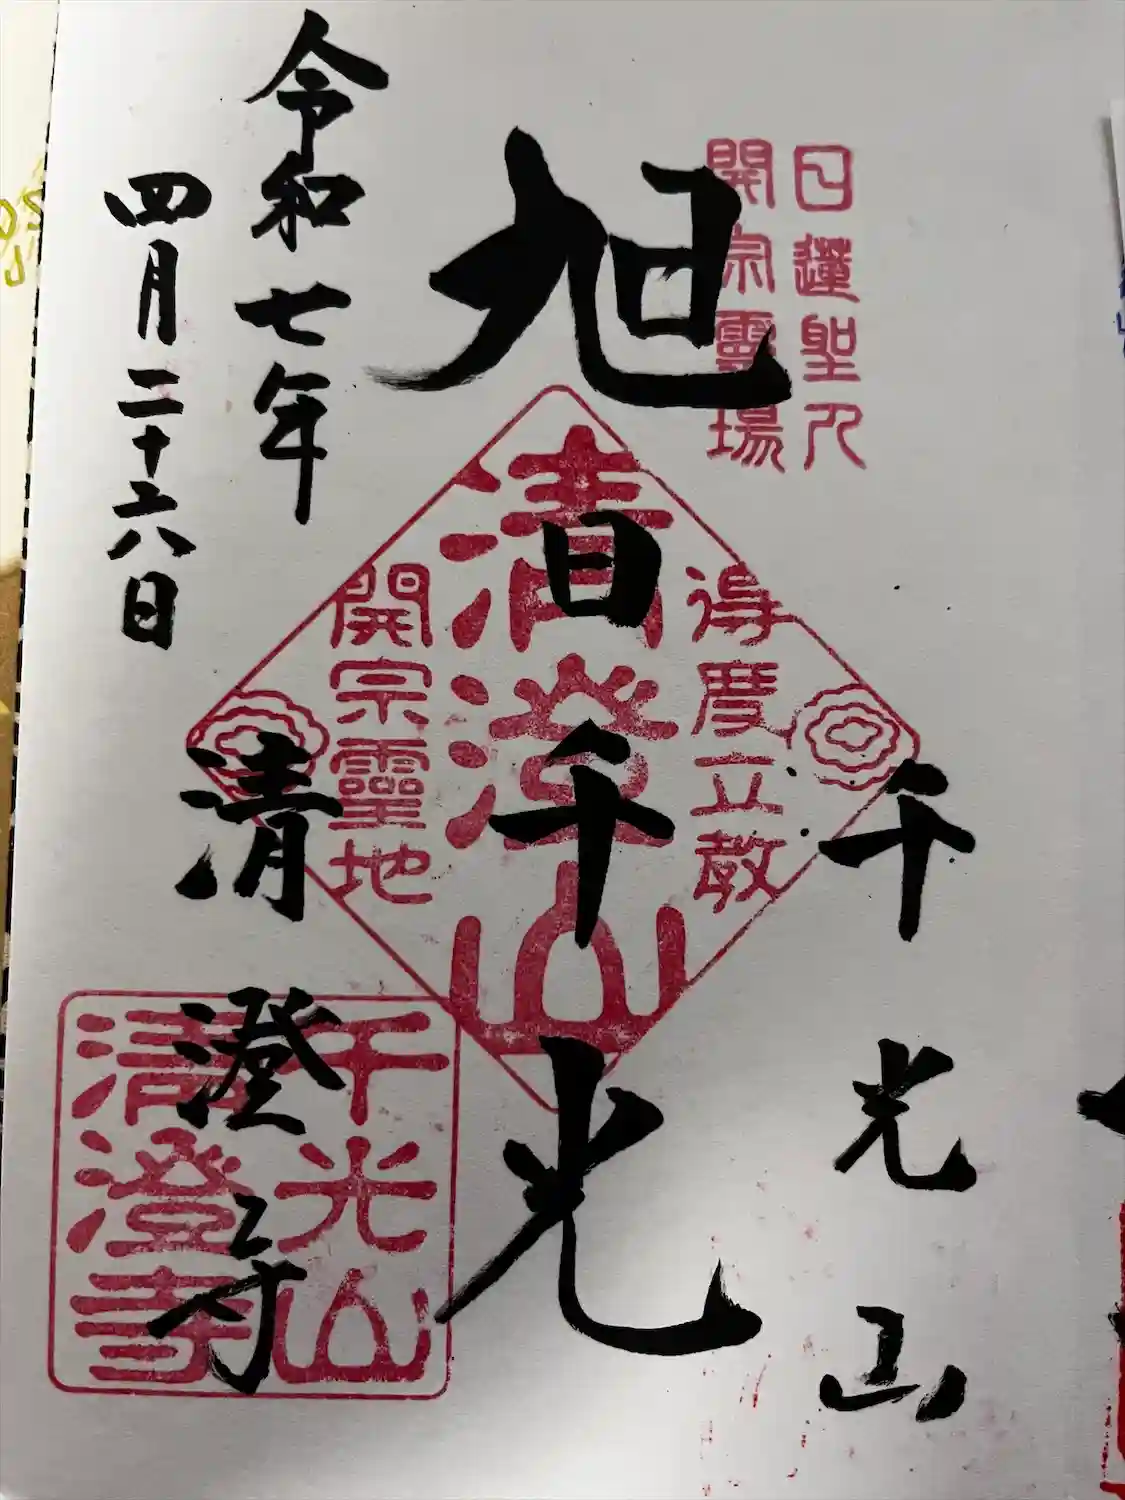 日蓮聖人
開宗霊場
千光山
旭日千光
得度立教
清澄山
開宗靈地
清澄寺
千光山
清澄寺
令和七年
四月二十六日